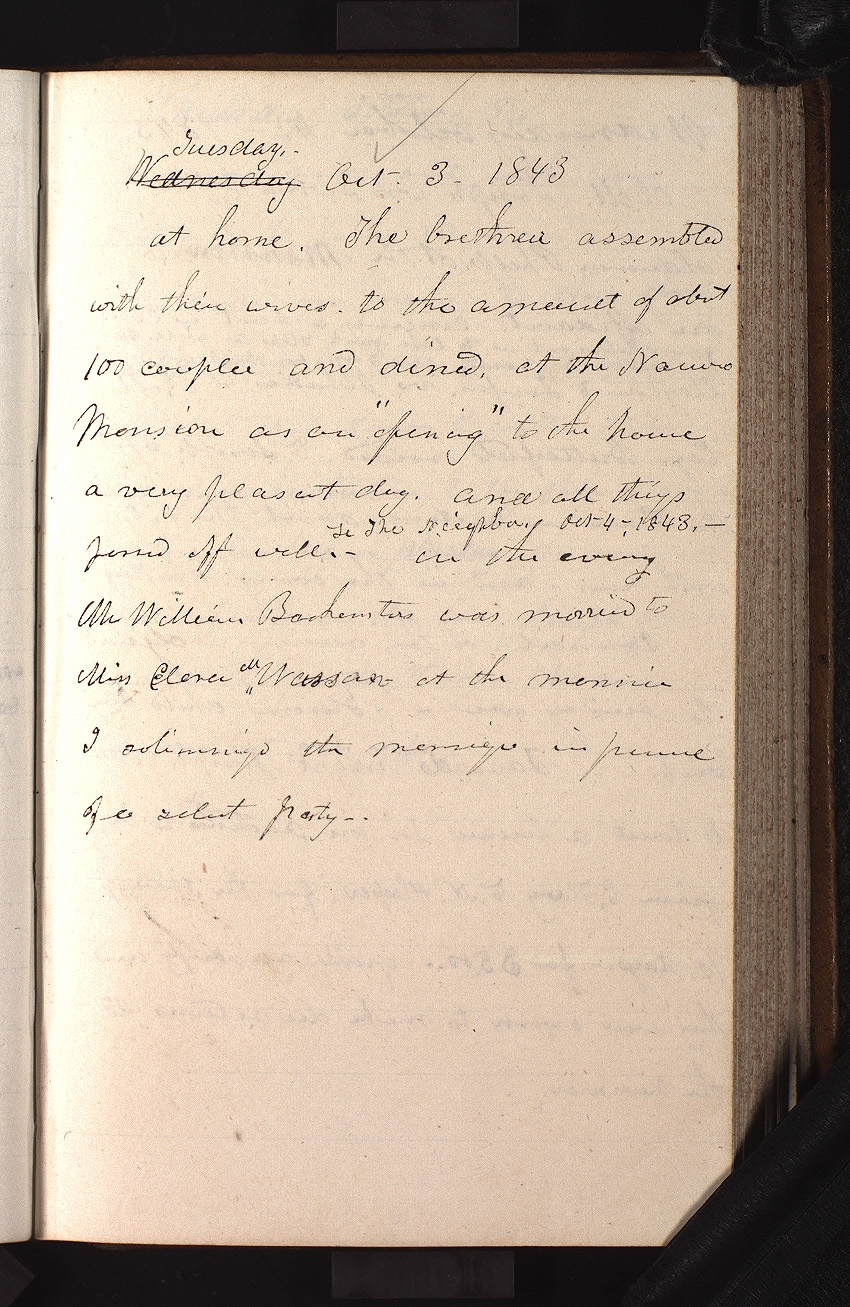 Tuesday.-
Wednesday Oct. 3- 1843
at home. The brethren assembled
with their wives. to the amount of about
100 couple and dined. at the Nauvoo
Mansion as an "opening" to the house
a very pleasant day. and all things
passed off well.-
Se The Neighbor, Oct-4-1843.-
in the evening
Mr William Backenstos was married to
Miss Clara M Wassan at the mansion
I solimnizd the marriage in presence
of a select party--.